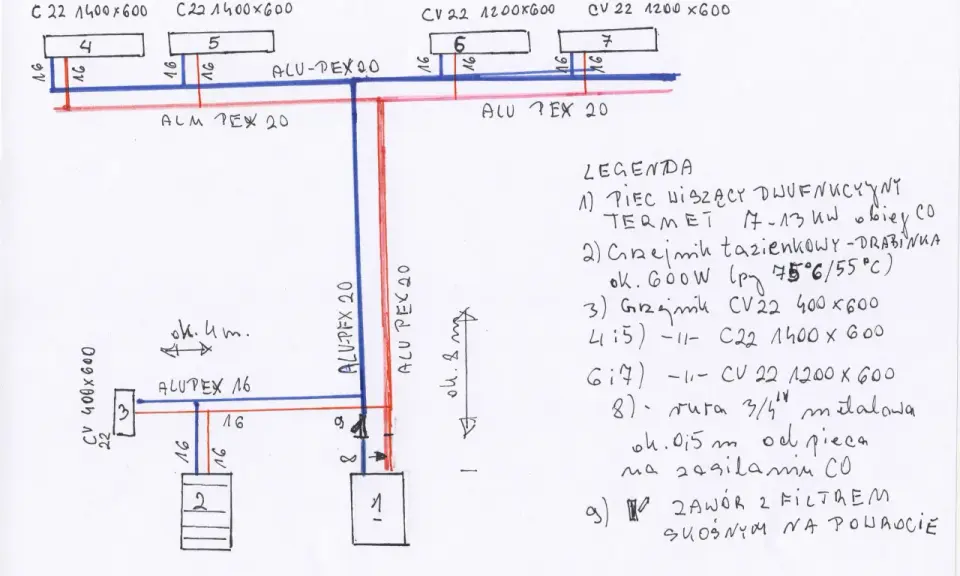 C 22 1400x600 C22 1400x600 CV 22 1200x600 CV 22 1200 x600
4 5 6 7
16 16 16 16 16 16 16 16
ALU-PEX 20
ALM PEX 20 ALU PEX 20
LEGENDA
1) PIEC WISZĄCY DWUFNKCYJNY
TERMET 7-13 KW obieg CO
2) Grzejnik łazienkowy-DRABINKA
ok. 600W (py 75°C/55°C)
3) Grzejnik CV22 400x600
4i5) -II- C22 1400 x 600
6i7) -II- CV 22 1200 x 600
8)- rura 3/4" mitalowa
ok. 0,5 m od pieca
na zasilaniu CO
9) ZAWÓR Z FILTREM
SKOŚNYM NA POWROCIE
ALU-PEX 20
ALU PEX 20
ok. 8 m
ok. 4 m.
ALUPEX 16
CV 400x600
22
3
16
16 16
9
8
2
1